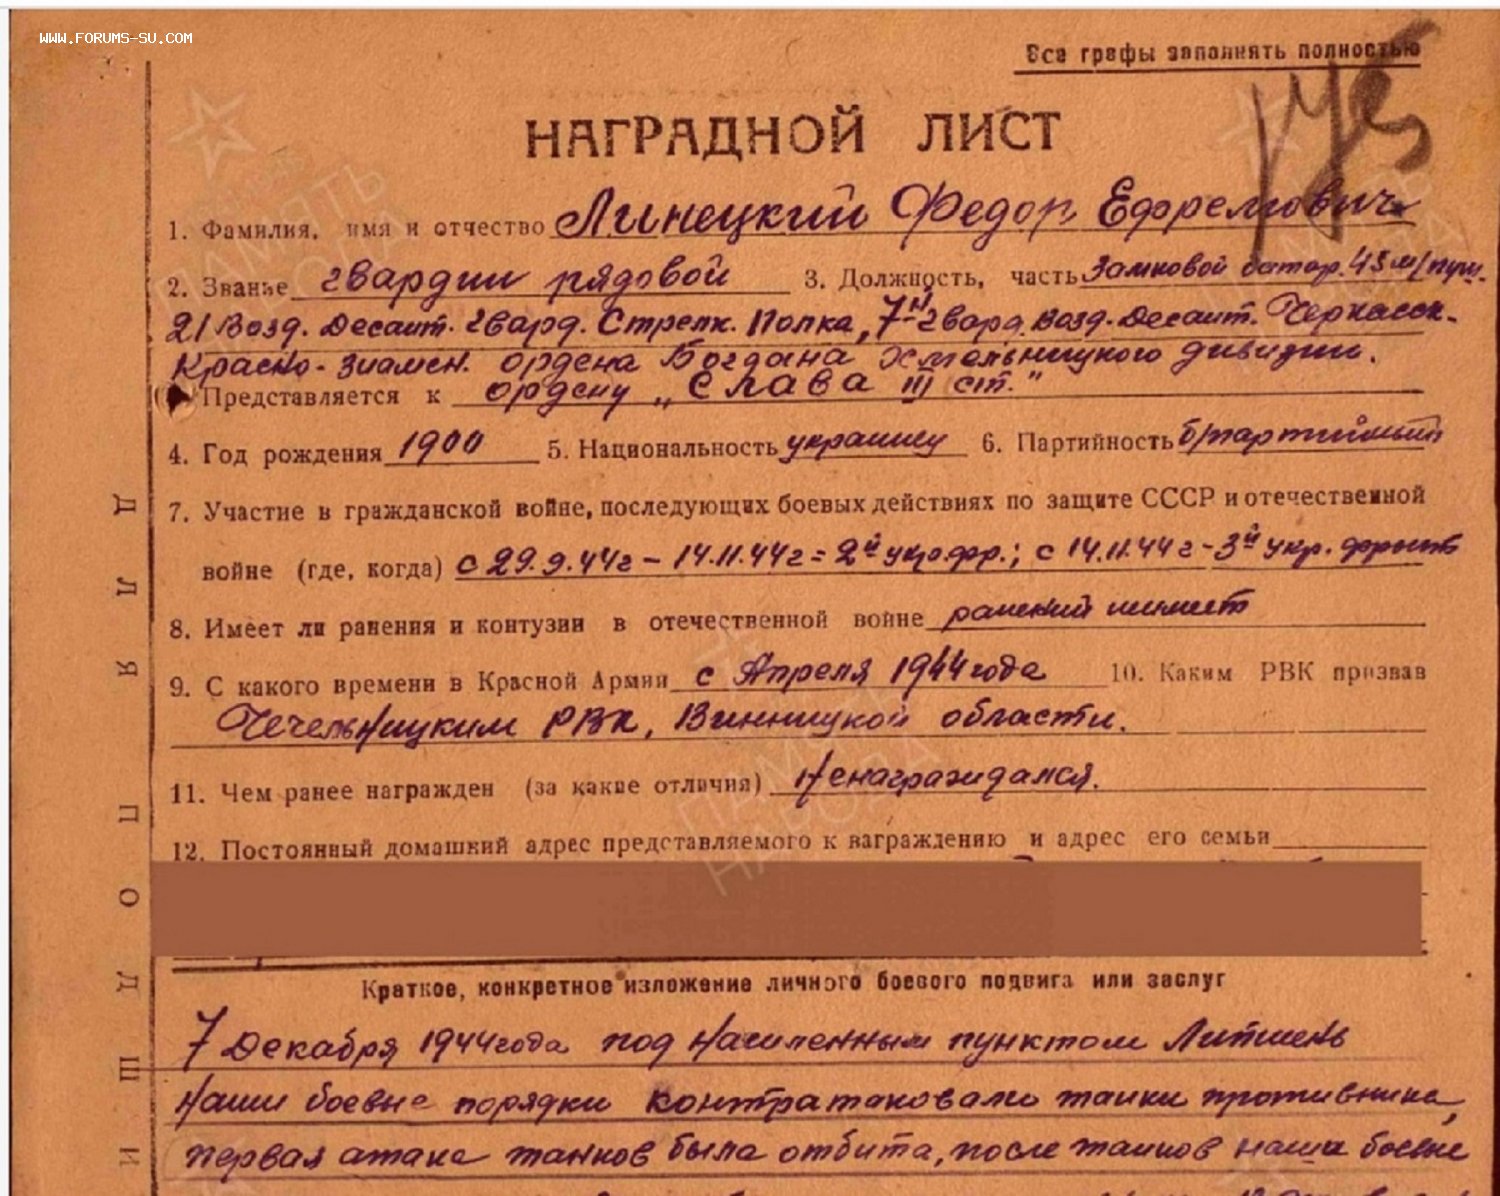 WWW.FORUMS-SU.COM
Все графы заполнять полностью
НАГРАДНОЙ ЛИСТ
1. Фамилия, имя и отчество Линецкий Федор Ефремович
2. Званье гвардии рядовой 3. Должность, часть Замковой батар. 45 м/пуш.
21 Возд. Десант. гвард. Стрелк. Полка, 7й гвард. Возд. Десант. Черкасск.
Красно-знамен. ордена Богдана Хмельницкого дивизии.
Представляется к ордену „Слава III ст."
4. Год рождения 1900 5. Национальность украинец 6. Партийность б/партийный
7. Участие в гражданской войне, последующих боевых действиях по защите СССР и отечественной
войне (где, когда) с 29.9.44г – 14.11.44г = 2й укр. фр.; с 14.11.44г - 3й укр. фронт
8. Имеет ли ранения и контузии в отечественной войне ранений
9. С какого времени в Красной Армии с Апреля 1944 года 10. Каким РВК призван
Чечельницким РВК, Винницкой области.
11. Чем ранее награжден (за какие отличия) Ненаграждался.
12. Постоянный домашний адрес представляемого к награждению и адрес его семьи
Краткое, конкретное изложение личного боевого подвига или заслуг
7 Декабря 1944 года под населенным пунктом
наши боевые порядки контратаковали танки противника,
первая атака танков была отбита, после танков наши боевые
ДЛЯ ПОДШИ
ПАМЯТЬ НАРОДА